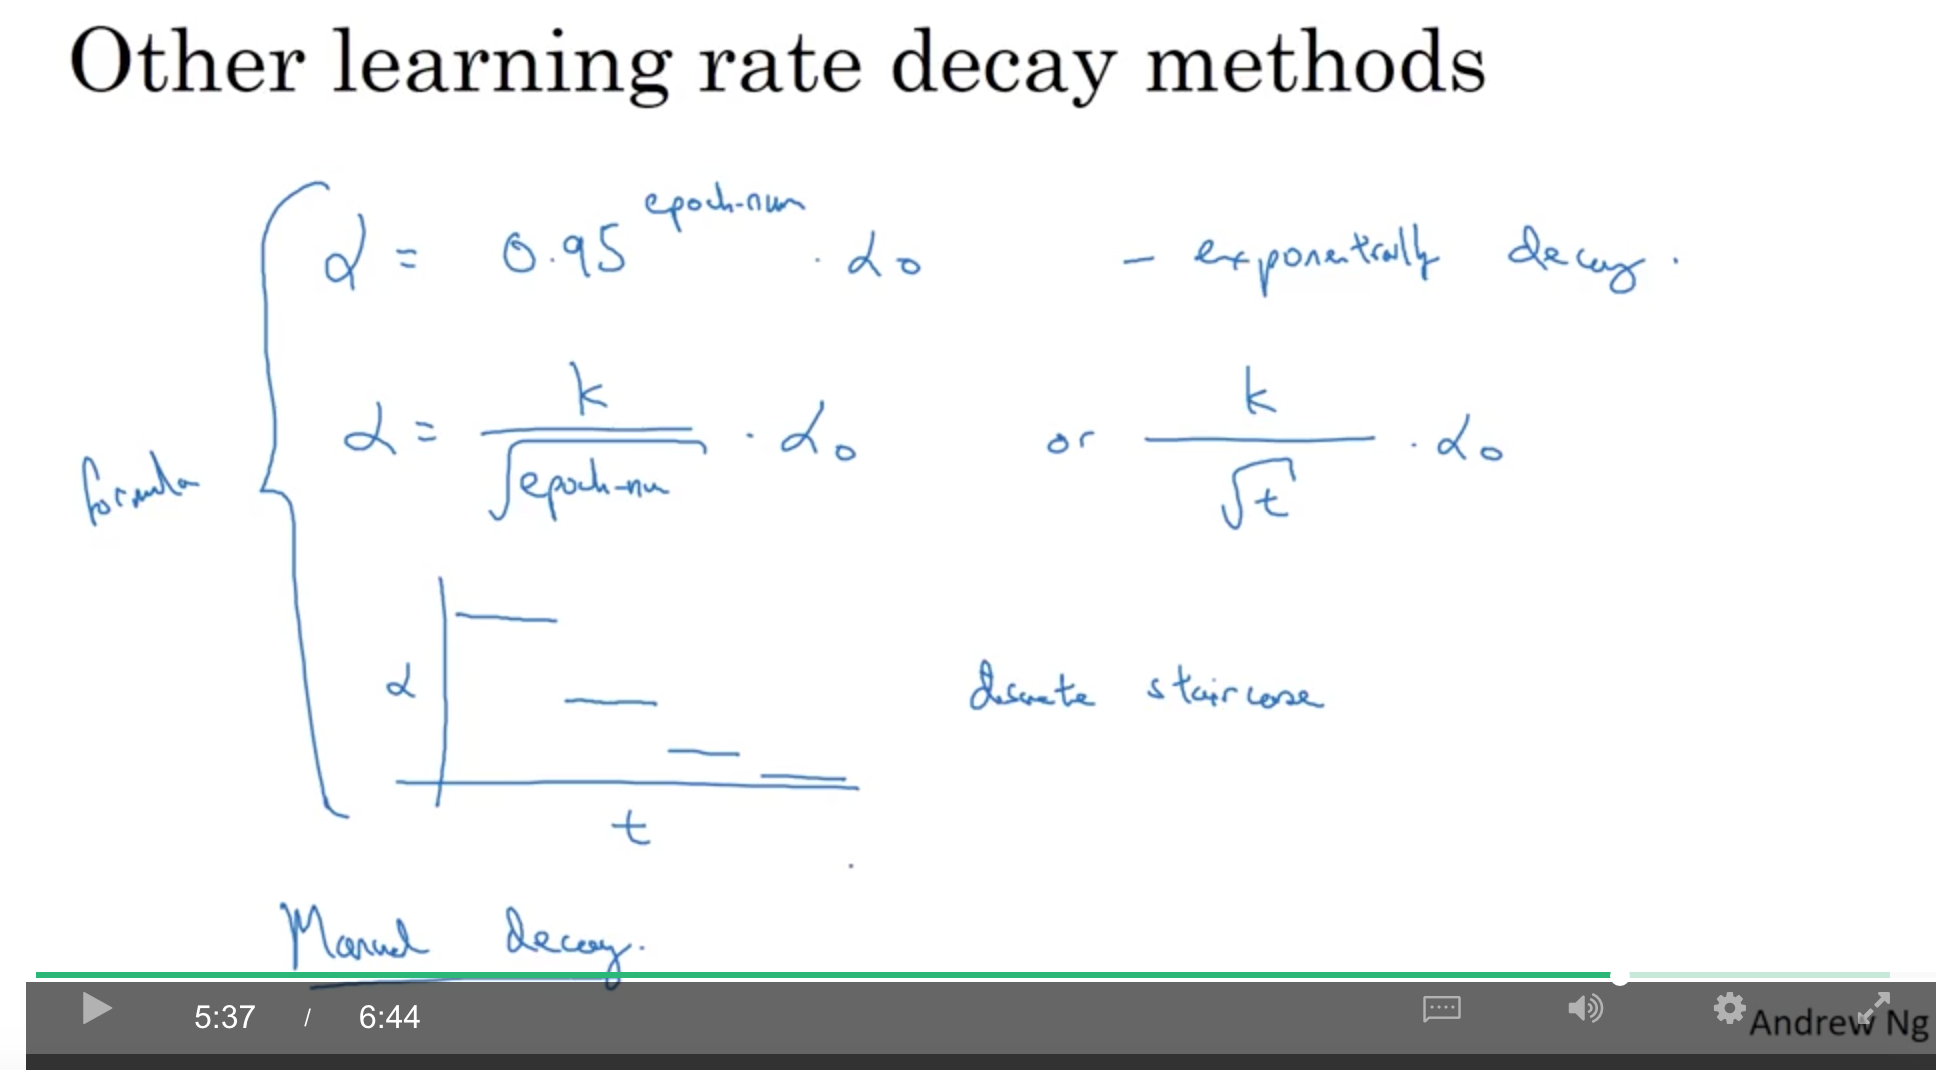 Other learning rate decay methods
α = 0.95^epoch-num · α₀ - exponentially decay.
formula
α = k / √epoch-num · α₀ or k / √t · α₀
α
discrete staircase
t
Manual decay.
5:37 / 6:44
Andrew Ng